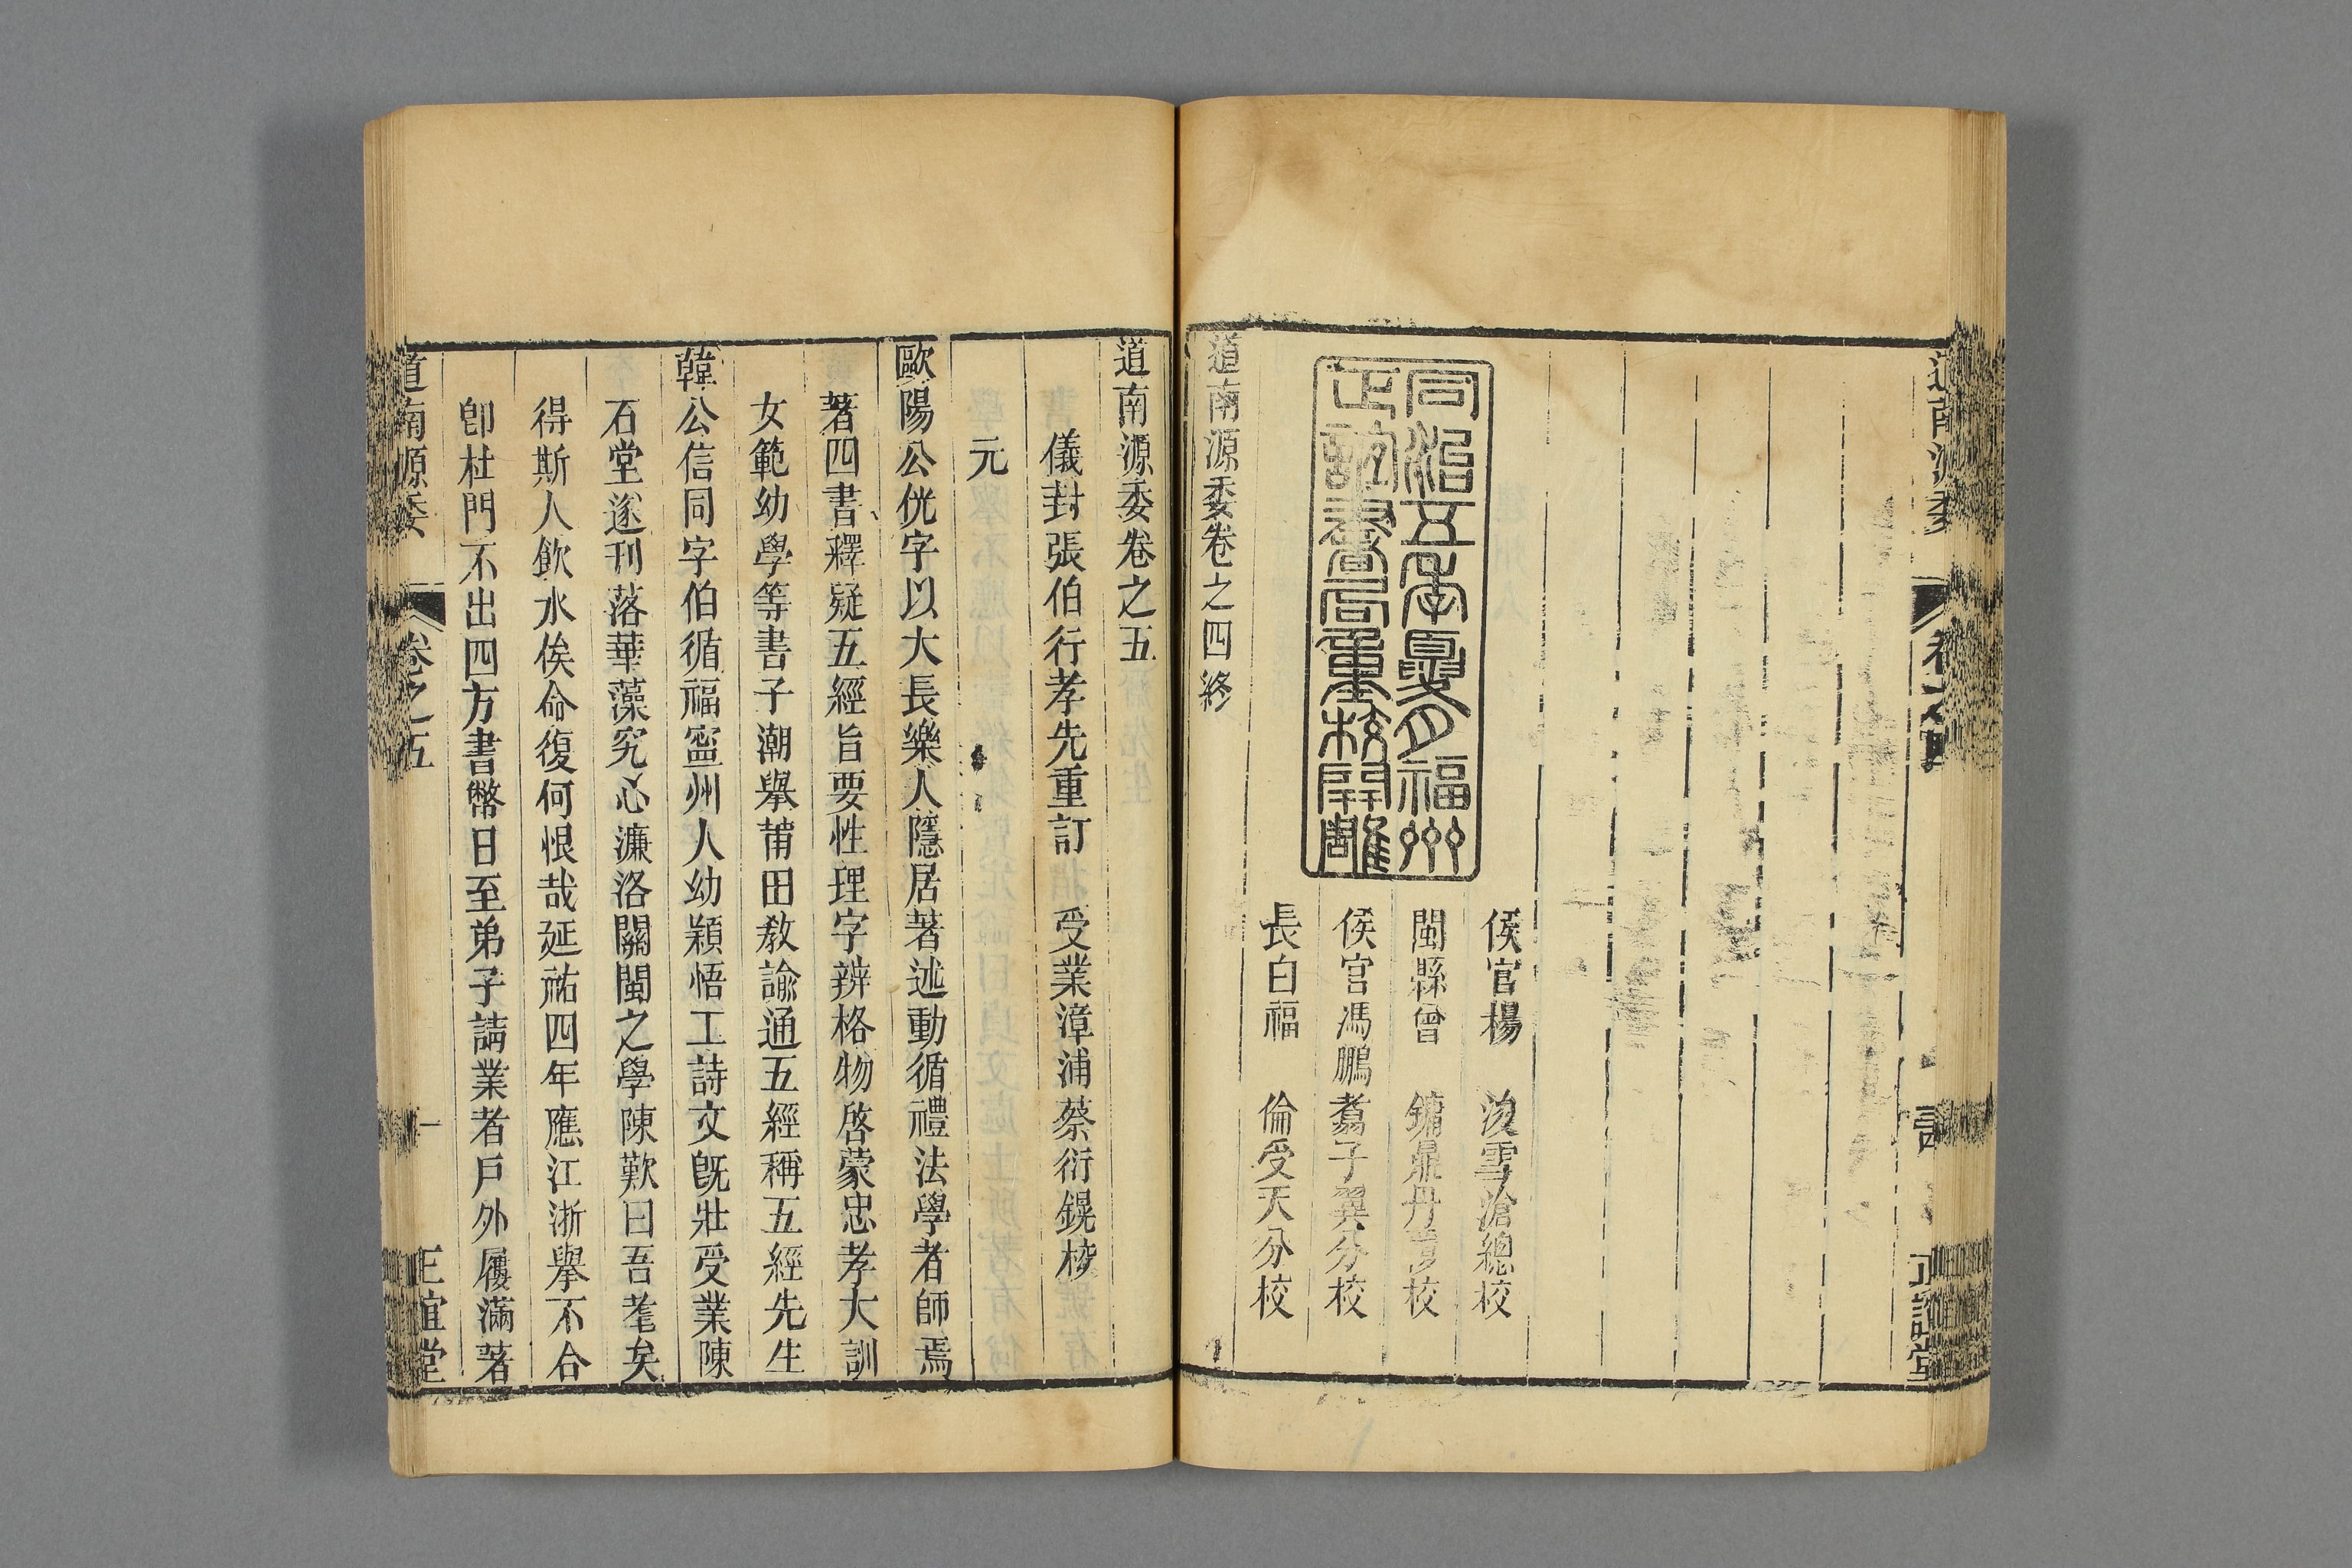 道南源委
正誼堂
同治五年夏月福州
正誼書局重校開雕
侯官楊 浚雪滄總校
閩縣曾 鏞鼎丹分校
侯官馮鵬翥子翼分校
長白福 倫受天分校
道南源委卷之四終
道南源委卷之五
儀封張伯行孝先重訂 受業漳浦蔡衍鎤校
元
歐陽公侊字以大長樂人隱居著述動循禮法學者師焉
著四書釋疑五經旨要性理字辨格物啓蒙忠孝大訓
女範幼學等書子潮舉莆田敎諭通五經稱五經先生
韓公信同字伯循福寧州人幼穎悟工詩文旣壯受業陳
石堂遂刊落華藻究心濂洛關閩之學陳歎曰吾耄矣
得斯人飲水俟命復何恨哉延祐四年應江浙舉不合
卽杜門不出四方書幣日至弟子請業者戶外屨滿著
道南源委 卷之五 一 正誼堂